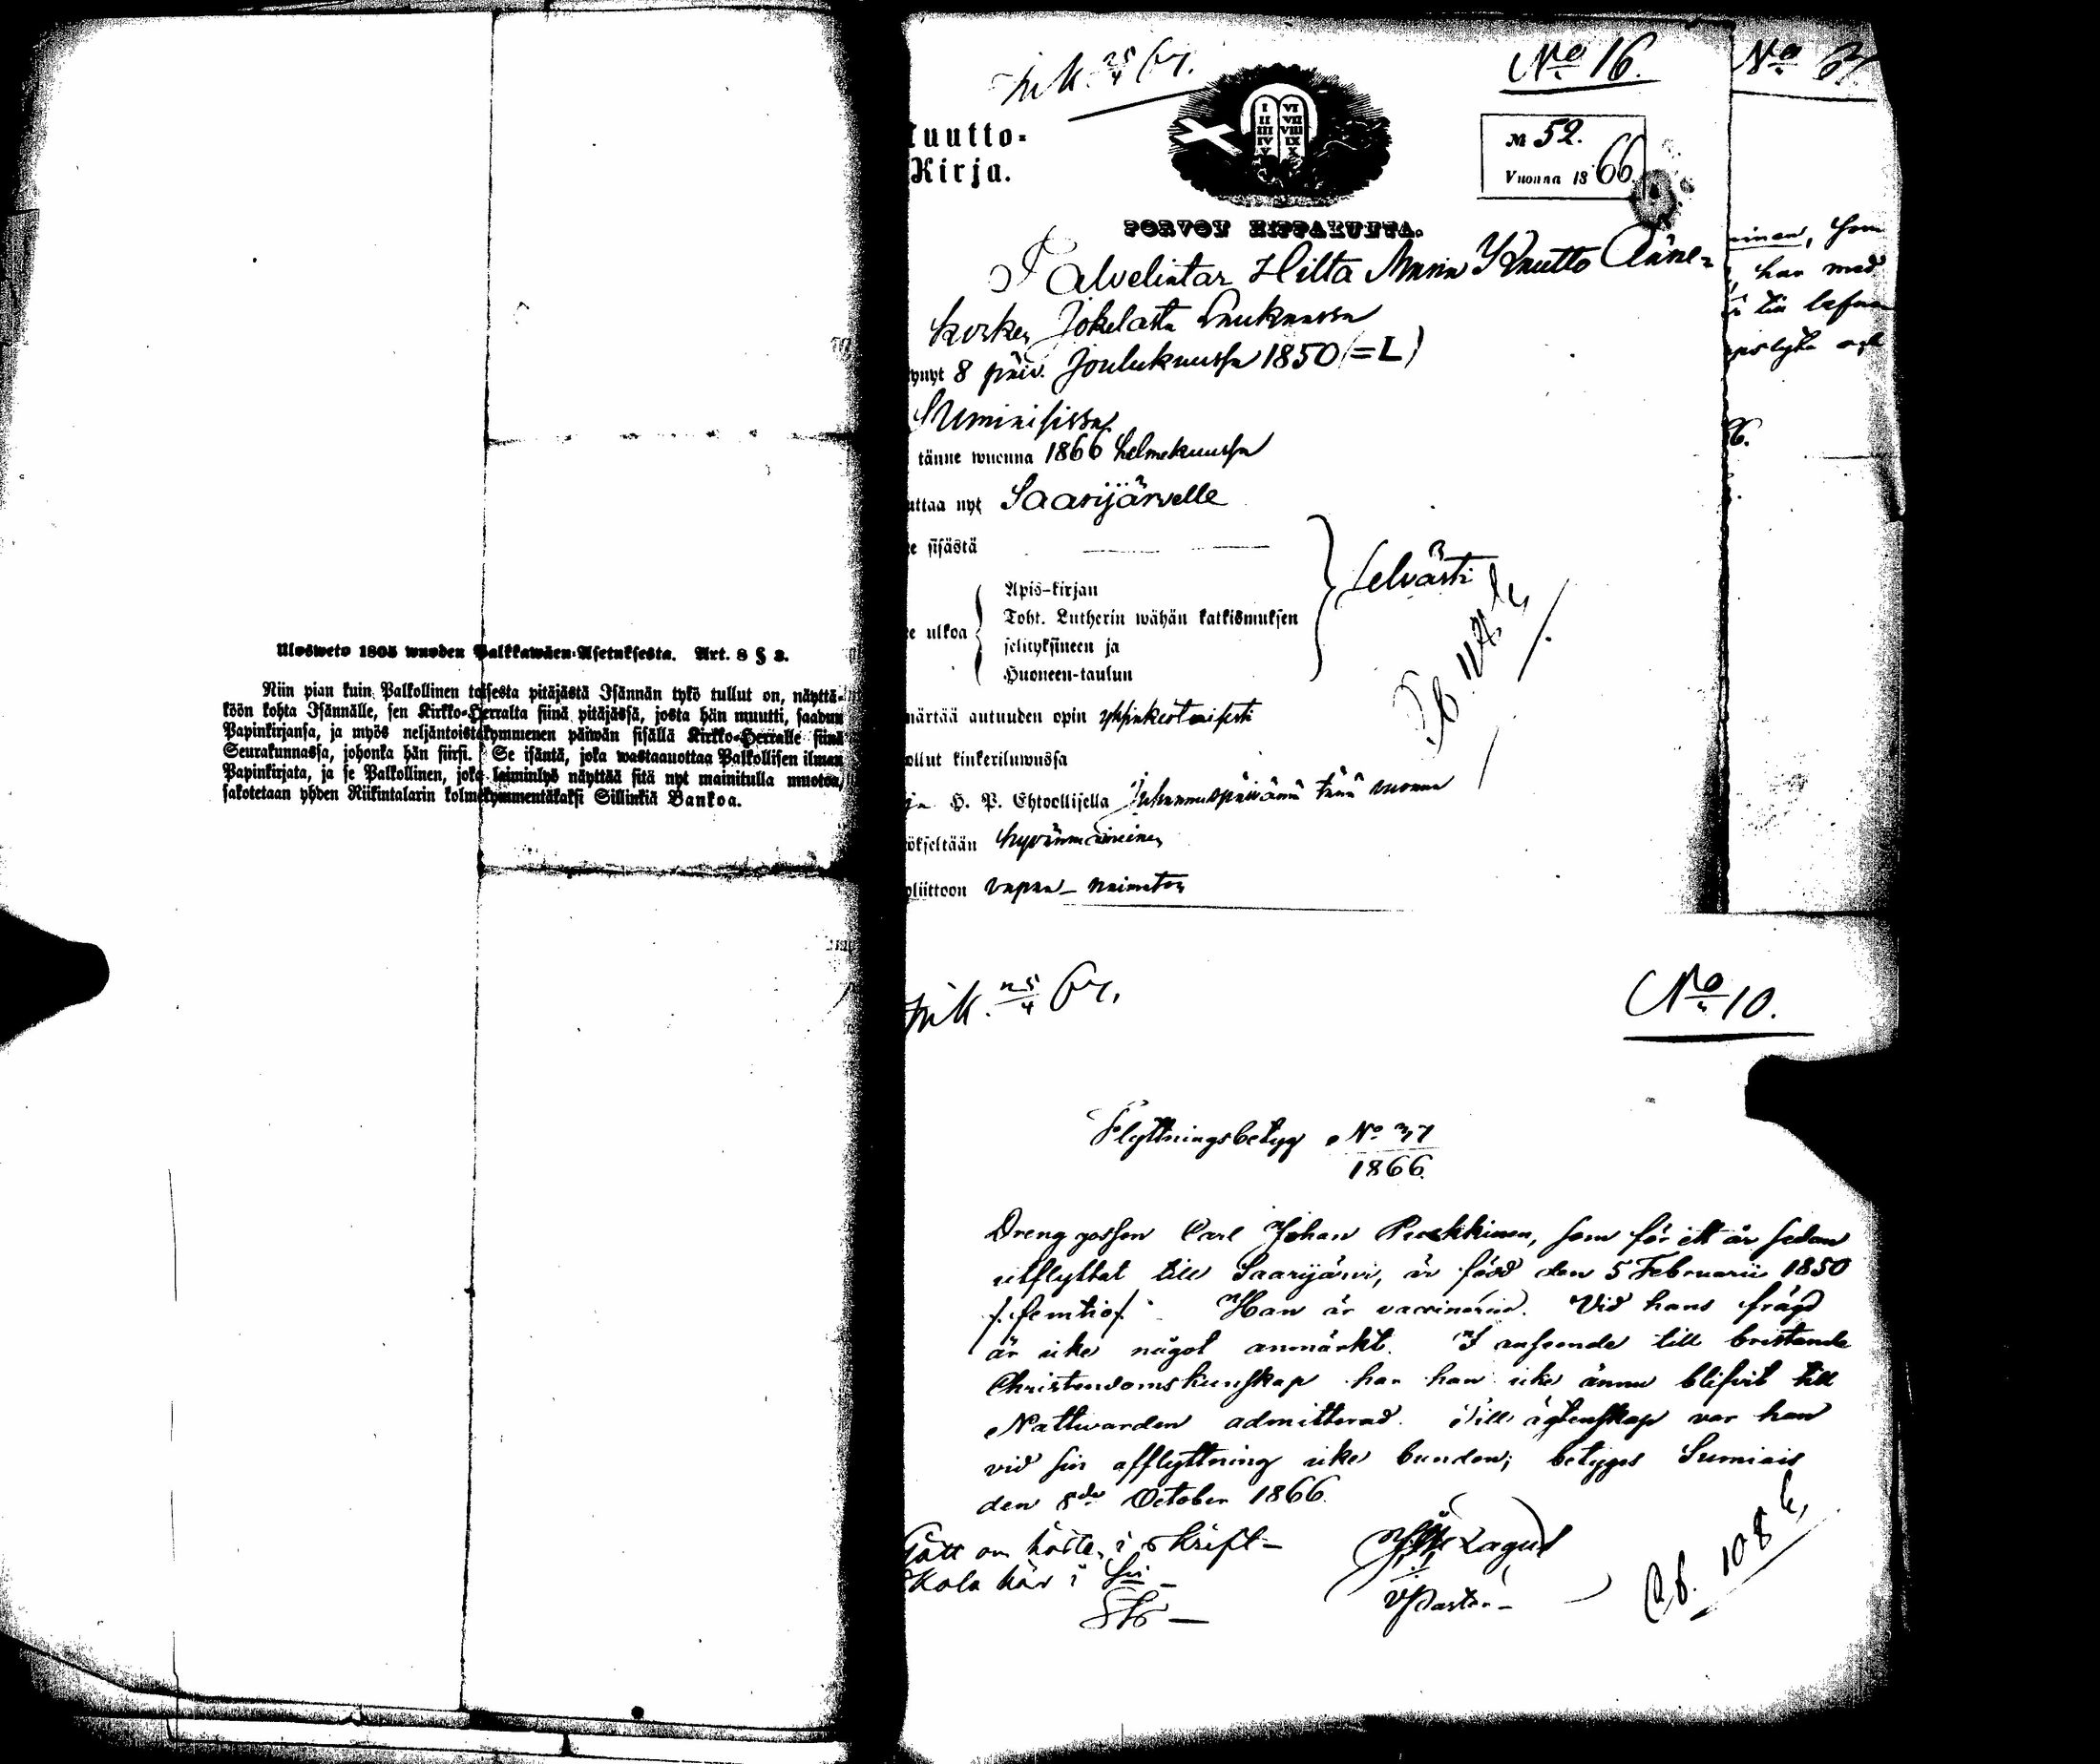 Ulosweto 1805 wuoden Palkkawäen-Asetuksesta. Art. 8 § 3.
Niin pian kuin Palkollinen toisesta pitäjästä Isännän tykö tullut on, näyttä-
köön kohta Isännälle, sen Kirkko-Herralta siinä pitäjässä, josta hän muutti, saadun
Papinkirjansa, ja myös neljäntoistakymmenen päiwän sisällä Kirkko-Herralle siinä
Seurakunnassa, johonka hän siirsi. Se isäntä, joka wastaanottaa Palkollisen ilman
Papinkirjata, ja se Palkollinen, joka laiminlyö näyttää sitä nyt mainitulla muotoa,
sakotetaan yhden Riikintalarin kolmekymmentäkaksi Sillinkiä Bankoa.
Ink. 25/4 67.
No 16.
uutto-
Kirja.
I II III IV V VI VII VIII IX X
№ 52.
Vuonna 1866.
PORVON HIPPAKUNTA.
Palvelintar Hilta Maria Knutto Ääne-
kosken Jokelasta Laukaassa
ynyt 8 päiv. Joulukuussa 1850 (=L)
Suminisissa
tänne wuonna 1866 helmekuussa
uttaa nyt Saarijärvelle
e sisästä
Selvästi
Apis-kirjan
Toht. Lutherin wähän katkismuksen
e ulkoa
selityksineen ja
Huoneen-taulun
märtää autuuden opin yksinkertaisesti
ollut kinkeriluwussa
ja H. P. Ehtoollisella Juhannuspäivänä tänä vuonna
ökseltään hyvänmaineinen
oliittoon vapaa – naimaton
No
ninen, som
han med
Ink. 25/4 67.
No 10.
Flyttningsbetyg No 37
1866.
Dreng gossen Carl Johan Puukkinen, som för ett år sedan
utflyttat till Saarijärvi, är född den 5 Februarii 1850
/:femtio:/. Han är vaccinerad. Vid hans frägd
är icke något anmärkt. I anseende till bristande
Christendomskunskap har han icke ännu blifvit till
Nattwarden admitterad. Till ägtenskap var han
vid sin afflyttning icke bunden; betygas Sumiais
den 8de October 1866.
Gått om hösten i skrift-
skola här i
Lagus
VPastor.
108